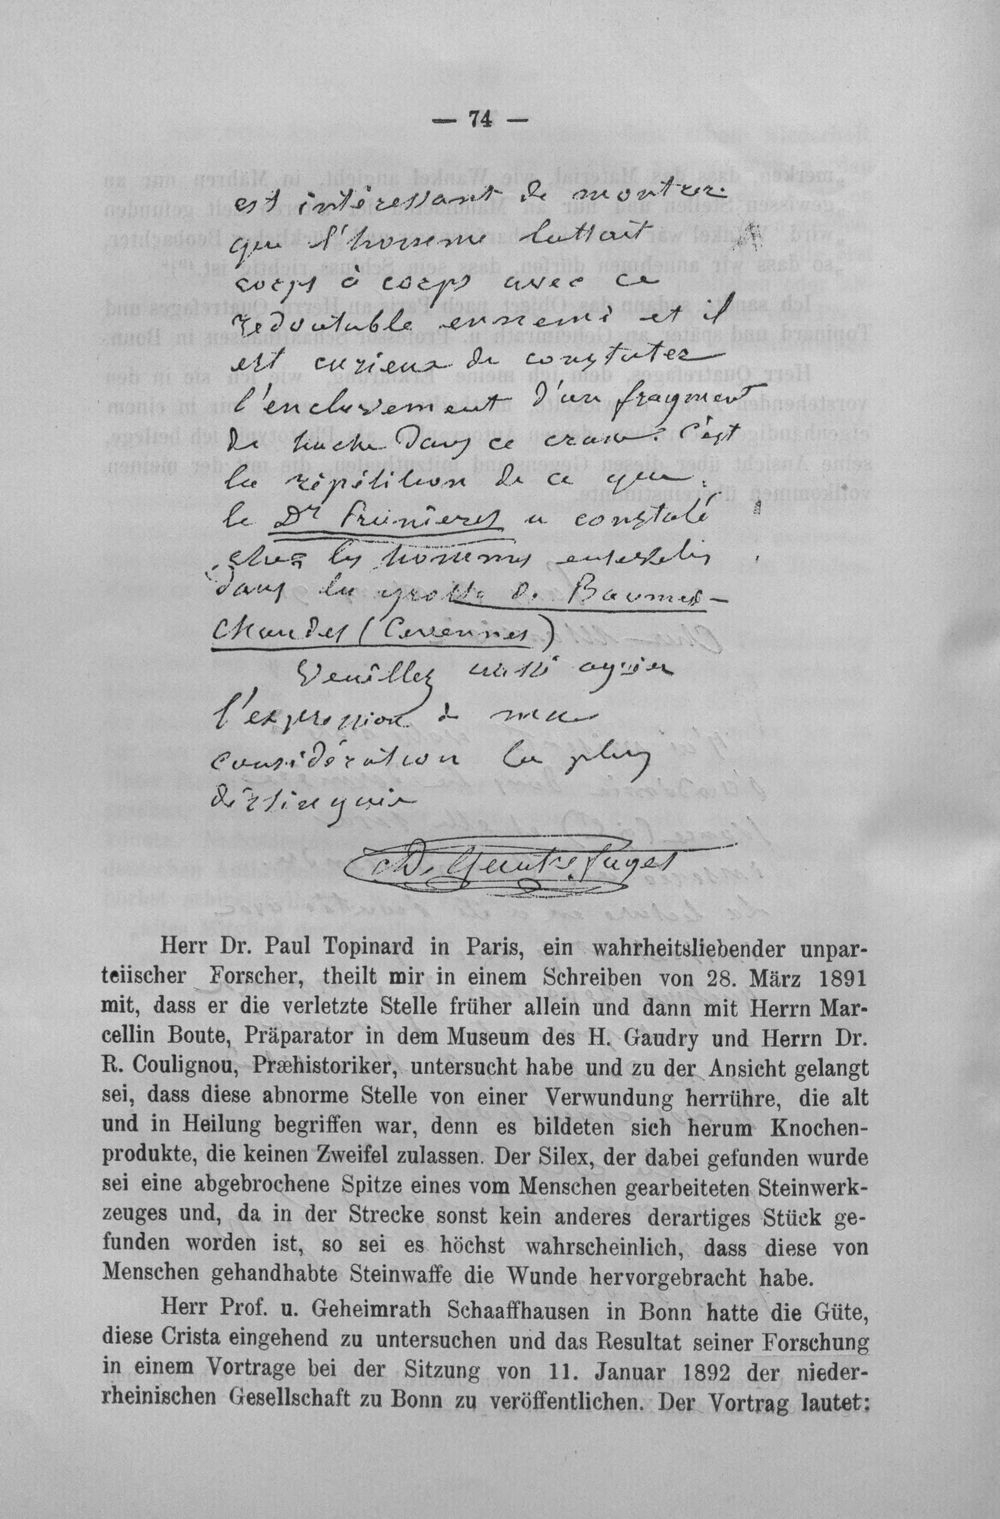 — 74 —
est intéressant de montrer
que l'homme luttait
corps à corps avec ce
redoutable ennemi et il
est curieux de constater
l'enclavement d'un fragment
de hache dans ce crane. C'est
la répétition de ce que
le Dr Prunieres a constaté
chez les hommes ensevelis
dans la grotte de Baumes-
Chaudes (Cevennes)
Veuillez aussi agréer
l'expression de ma
considération la plus
distinguée
Herr Dr. Paul Topinard in Paris, ein wahrheitsliebender unpar-
teiischer Forscher, theilt mir in einem Schreiben von 28. März 1891
mit, dass er die verletzte Stelle früher allein und dann mit Herrn Mar-
cellin Boute, Präparator in dem Museum des H. Gaudry und Herrn Dr.
R. Coulignou, Præhistoriker, untersucht habe und zu der Ansicht gelangt
sei, dass diese abnorme Stelle von einer Verwundung herrühre, die alt
und in Heilung begriffen war, denn es bildeten sich herum Knochen-
produkte, die keinen Zweifel zulassen. Der Silex, der dabei gefunden wurde
sei eine abgebrochene Spitze eines vom Menschen gearbeiteten Steinwerk-
zeuges und, da in der Strecke sonst kein anderes derartiges Stück ge-
funden worden ist, so sei es höchst wahrscheinlich, dass diese von
Menschen gehandhabte Steinwaffe die Wunde hervorgebracht habe.
Herr Prof. u. Geheimrath Schaaffhausen in Bonn hatte die Güte,
diese Crista eingehend zu untersuchen und das Resultat seiner Forschung
in einem Vortrage bei der Sitzung von 11. Januar 1892 der nieder-
rheinischen Gesellschaft zu Bonn zu veröffentlichen. Der Vortrag lautet: